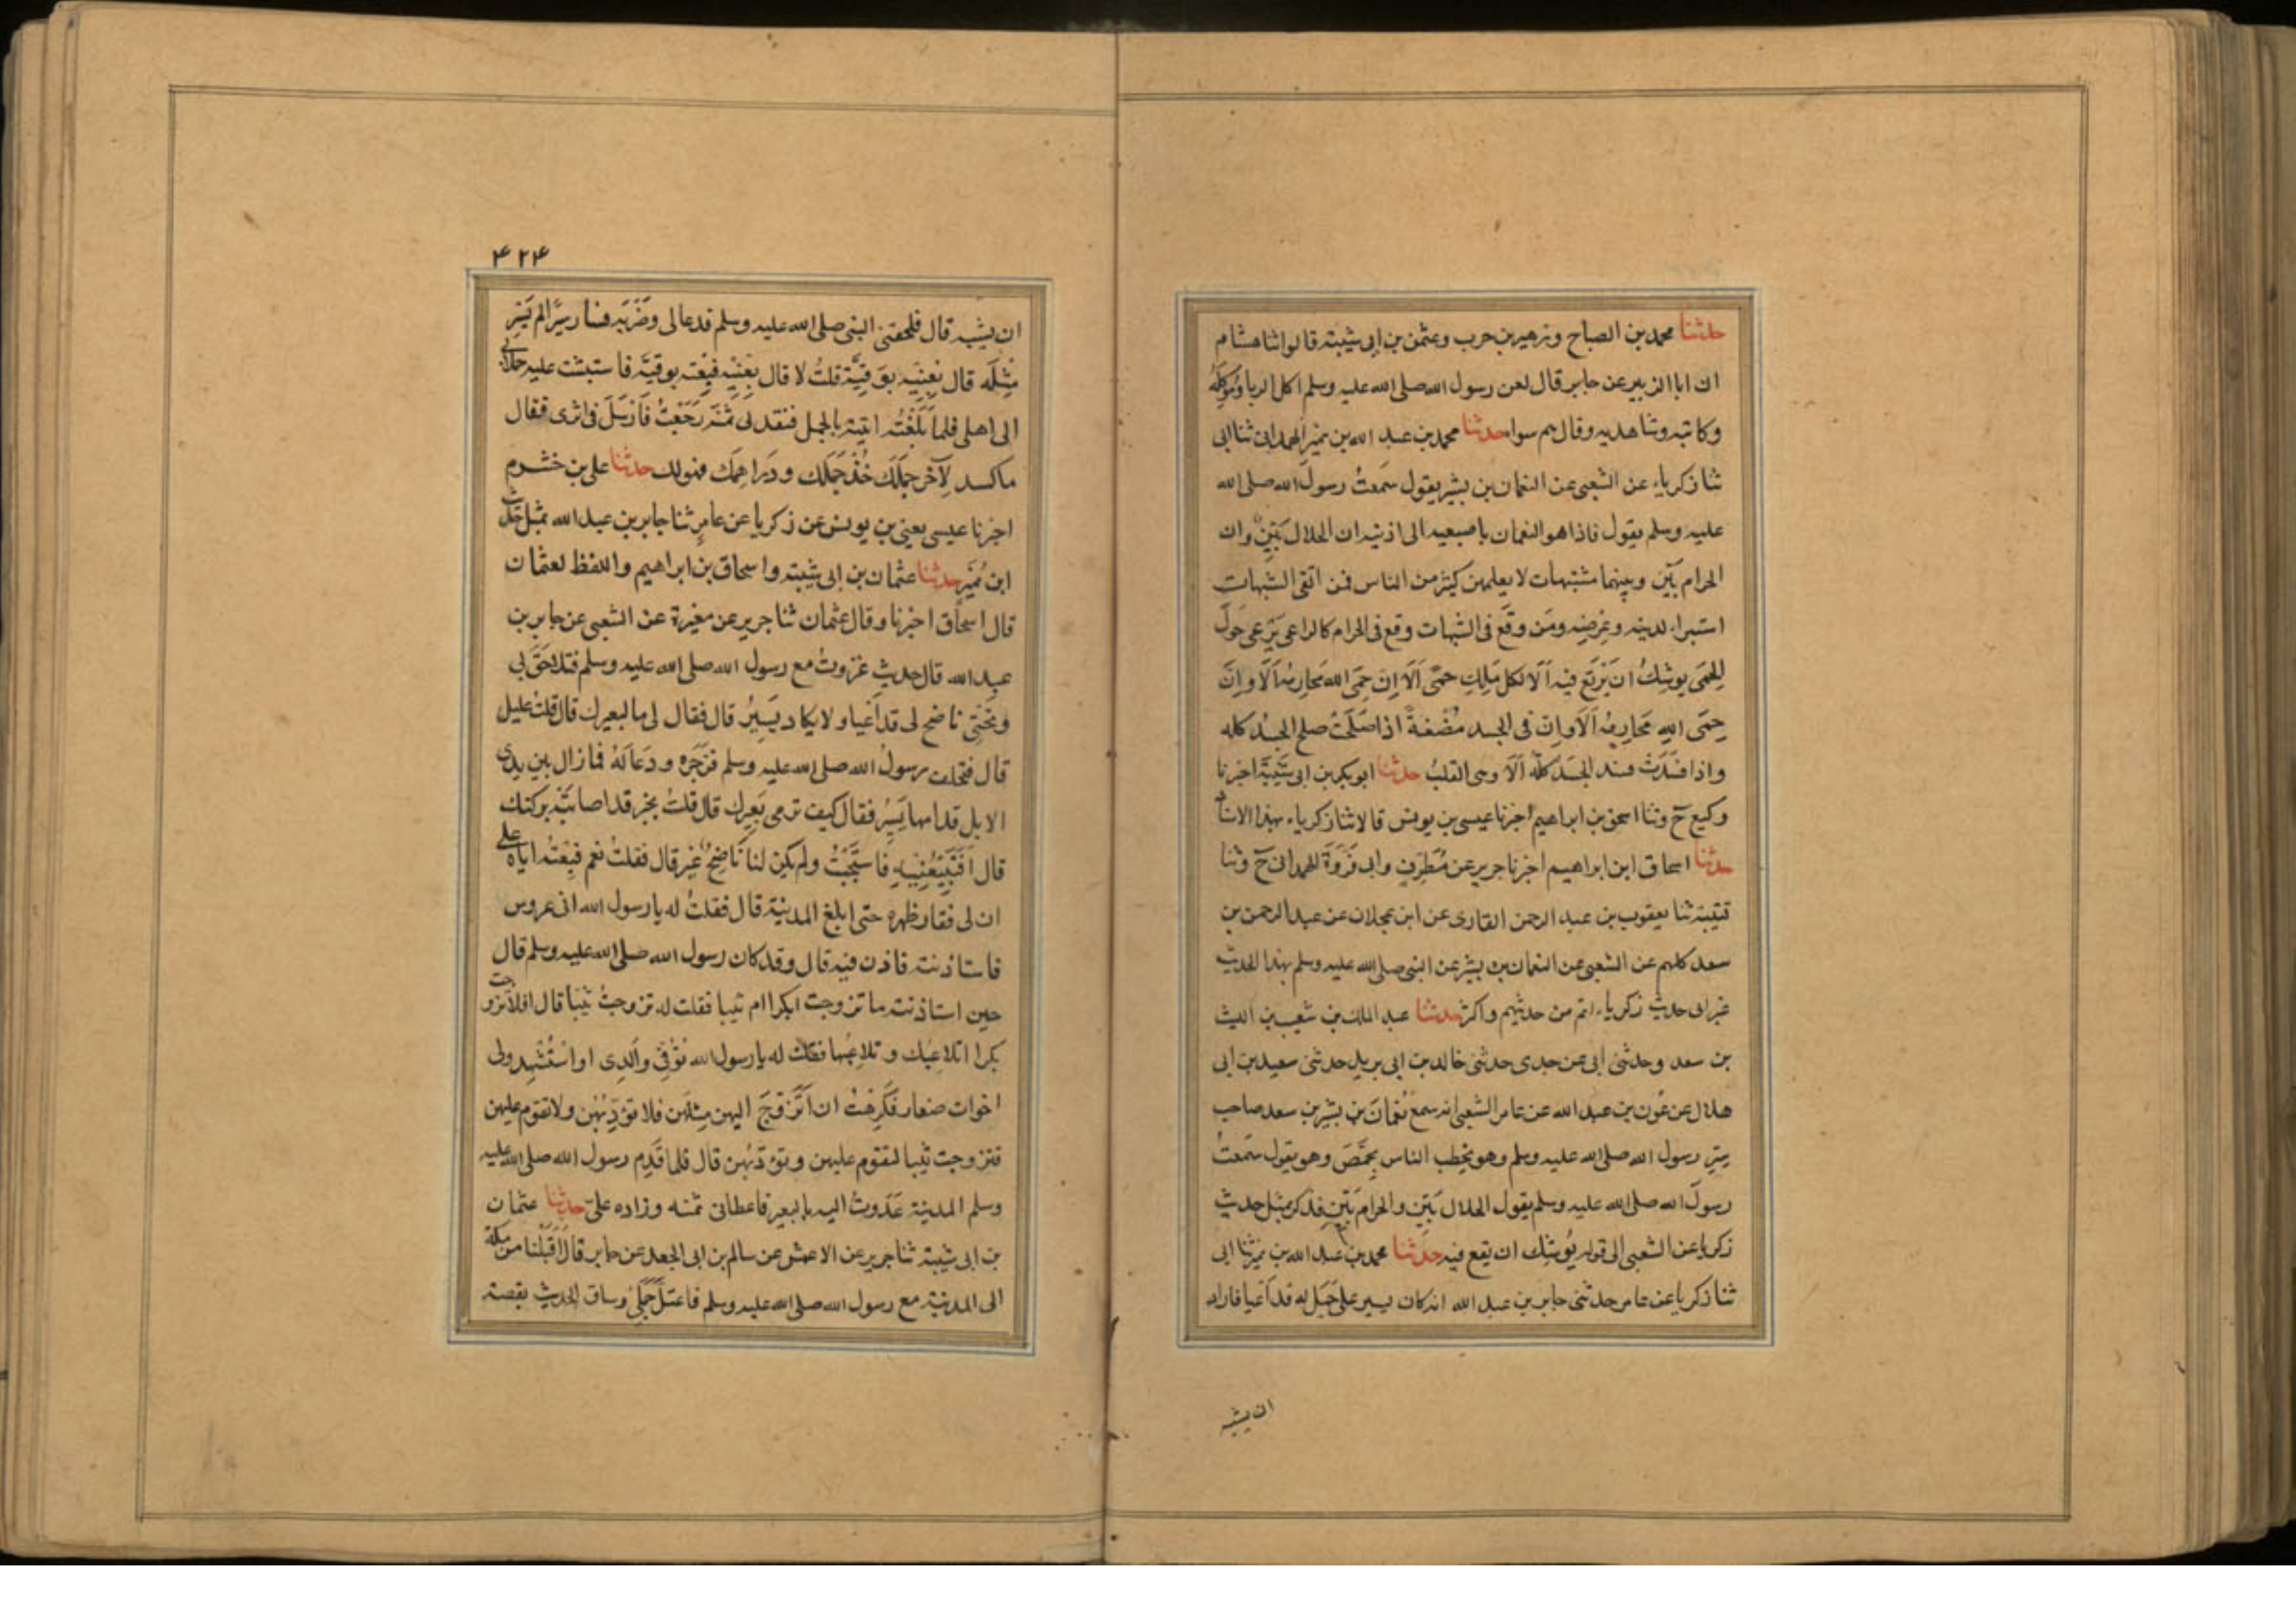 حدثنا محمد بن الصباح وزهير بن حرب وعثمن بن ابى شيبة قالوا ثنا هشام
ان ابا الزبير عن جابر قال لعن رسول الله صلى الله عليه وسلم اكل الربا وَمُوكِلَهُ
وكاتبه وشاهديه وقال هم سوا حدثنا محمد بن عبد الله بن نمير الهمدانى ثنا ابى
ثنا زكرياء عن الشعبى عن النعمان بن بشير يقول سَمعتُ رسول الله صلى الله
عليه وسلم يقول فاذا هو النعمان باصبعيه الى اذنيه ان الحلال بَيّنٌ وان
الحرام بَيّن وبينهما مشتبهات لا يعلمهن كثير من الناس فمن اتقى الشبهات
استبراء لدينه وعِرضِه ومَن وقَعَ فى الشبهات وقع فى الحرام كالراعى يَرْعى حَولَ
الحِمَى يوشِكُ ان يَرْتَعَ فيه اَلَا لكل مَلِكٍ حِمًى اَلَا اِنّ حِمَى الله مَحارِمُه اَلَا واِنَّ
حِمَى اللهِ مَحَارِمُه اَلَا واِنّ فى الجسد مُضْغَةً اذا صَلَحَتْ صلح الجسَدُ كله
واذا فسَدَتْ فسد الجسَد كلّه اَلَا وهى القلبُ حدثنا ابو بكر بن ابى شَيْبَة اخبرنا
وكيع ح وثنا اسحق بن ابراهيم اخبرنا عيسى بن يونس قالا ثنا زكرياء بهذا الاسناد
حدثنا اسحاق ابن ابراهيم اخبرنا جرير عن مُطَرِّفٍ وابى فَرْوَةَ الهمدانى ح وثنا
قتيبة ثنا يعقوب بن عبد الرحمن القارى عن ابن عجلان عن عبد الرحمن بن
سعد كلهم عن الشعبى عن النعمان بن بشير عن النبى صلى الله عليه وسلم بهذا الحديث
غير ان حديث زكرياء اتم من حديثهم واكثر حدثنا عبد الملك بن شعيب بن الليث
بن سعد وحدثنى ابى عن جدى حدثنى خالد بن ابى يريد حدثنى سعيد بن ابى
هلال عن عَون بن عبد الله عن عامر الشعبى انه سمع نُعْمانَ بن بشير بن سعد صاحب
رسول الله صلى الله عليه وسلم وهو يخطب الناس بحِمْصَ وهو يقول سَمعتُ
رسولَ الله صلى الله عليه وسلم يقول الحلال بَيّن والحرام بَيّن فذكر مثل حديث
زكريا عن الشعبى الى قوله يُوشِك ان يقع فيه حدثنا محمد بن عبد الله بن نمير ثنا ابى
ثنا زكريا عن عامر حدثنى جابر بن عبد الله انه كان يسير على جَمَل له قد اَعيا فاراد
ان يسيبه
۴۲۴
ان يسيبه قال فلحقنى النبى صلى الله عليه وسلم فدعا لى وضَرَبَه فسار سيرًا لم يَسِر
مِثلَه قال بِعْنِيه بوَقِيّة قلتُ لا قال بِعْنِيْه فبِعْته بوقيّة فاستثنيت عليه حملانه
الى اهلى فلما بَلَغْتُ اتيته بالجمل فنقد لى ثمنه رَجَعْتُ فَاَرْسَلَ فى اثرى فقال
ماكسد لآخر جَمَلَك خُذْ جَمَلك ودَراهِمَك فهو لك حدثنا على بن خشرم
اخبرنا عيسى يعنى بن يونس عن زكريا عن عامِرٍ ثنا جابر بن عبد الله بمثل حديث
ابن نُمَير حدثنا عثمان بن ابى شيبة واسحاق بن ابراهيم واللفظ لعثمان
قال اسحاق اخبرنا وقال عثمان ثنا جرير عن مغيرة عن الشعبى عن جابر بن
عبد الله قال حديث غزوتُ مع رسول الله صلى الله عليه وسلم فتلاحَقَ بى
وتَحْتِى ناضح لى قد اَعْيا ولا يكاد يَسِيرُ قال فقال لى ما لبعيرك قال قلتُ عليل
قال فتخلف رسولُ الله صلى الله عليه وسلم فزَجَره ودَعَا لَهُ فما زال بين يدى
الابل قدامها يَسِيرُ فقال كيف ترى بَعِيرك قال قلتُ بخير قد اصابَتْه بركتك
قال اَفتَبِيْعُنِيْهِ فاستَحْيَيْتُ ولم يكن لنا نَاضِحٌ غير قال فقلتُ نعم فبِعْتُه اياه على
ان لى فقار ظهره حتى ابلغ المدينة قال فقلتُ له يا رسول الله انى عروس
فاستاذنته فاذن فيه قال وقد كان رسول الله صلى الله عليه وسلم قال
حين استاذنته ما تزوجت ابكرا ام ثيبا فقلت له تزوجتُ ثيّبا قال افلا تزوجت
بكرا اتلاعبك وتلاعِبُها فقلت له يا رسول الله تُوُفّى والدِى او اسْتُشْهِد ولى
اخوات صغار فكَرِهْتُ ان اَتَزَوّجَ اليهن مثلهن فلا تؤدّبُهن ولا تقوم عليهن
فتزوجت ثيبا لتقوم عليهن وتؤدّبُهن قال فلما قَدِم رسول الله صلى الله عليه
وسلم المدينة غَدَوتُ اليه بالبعير فاعطانى ثمنه وزاده علىّ حدثنا عثمان
بن ابى شيبة ثنا جرير عن الاعمش عن سالم بن ابى الجعد عن جابر قال اَقْبَلْنا من مكة
الى المدينة مع رسول الله صلى الله عليه وسلم فاعتلّ جَمَلِى وساق الحديث بقصته